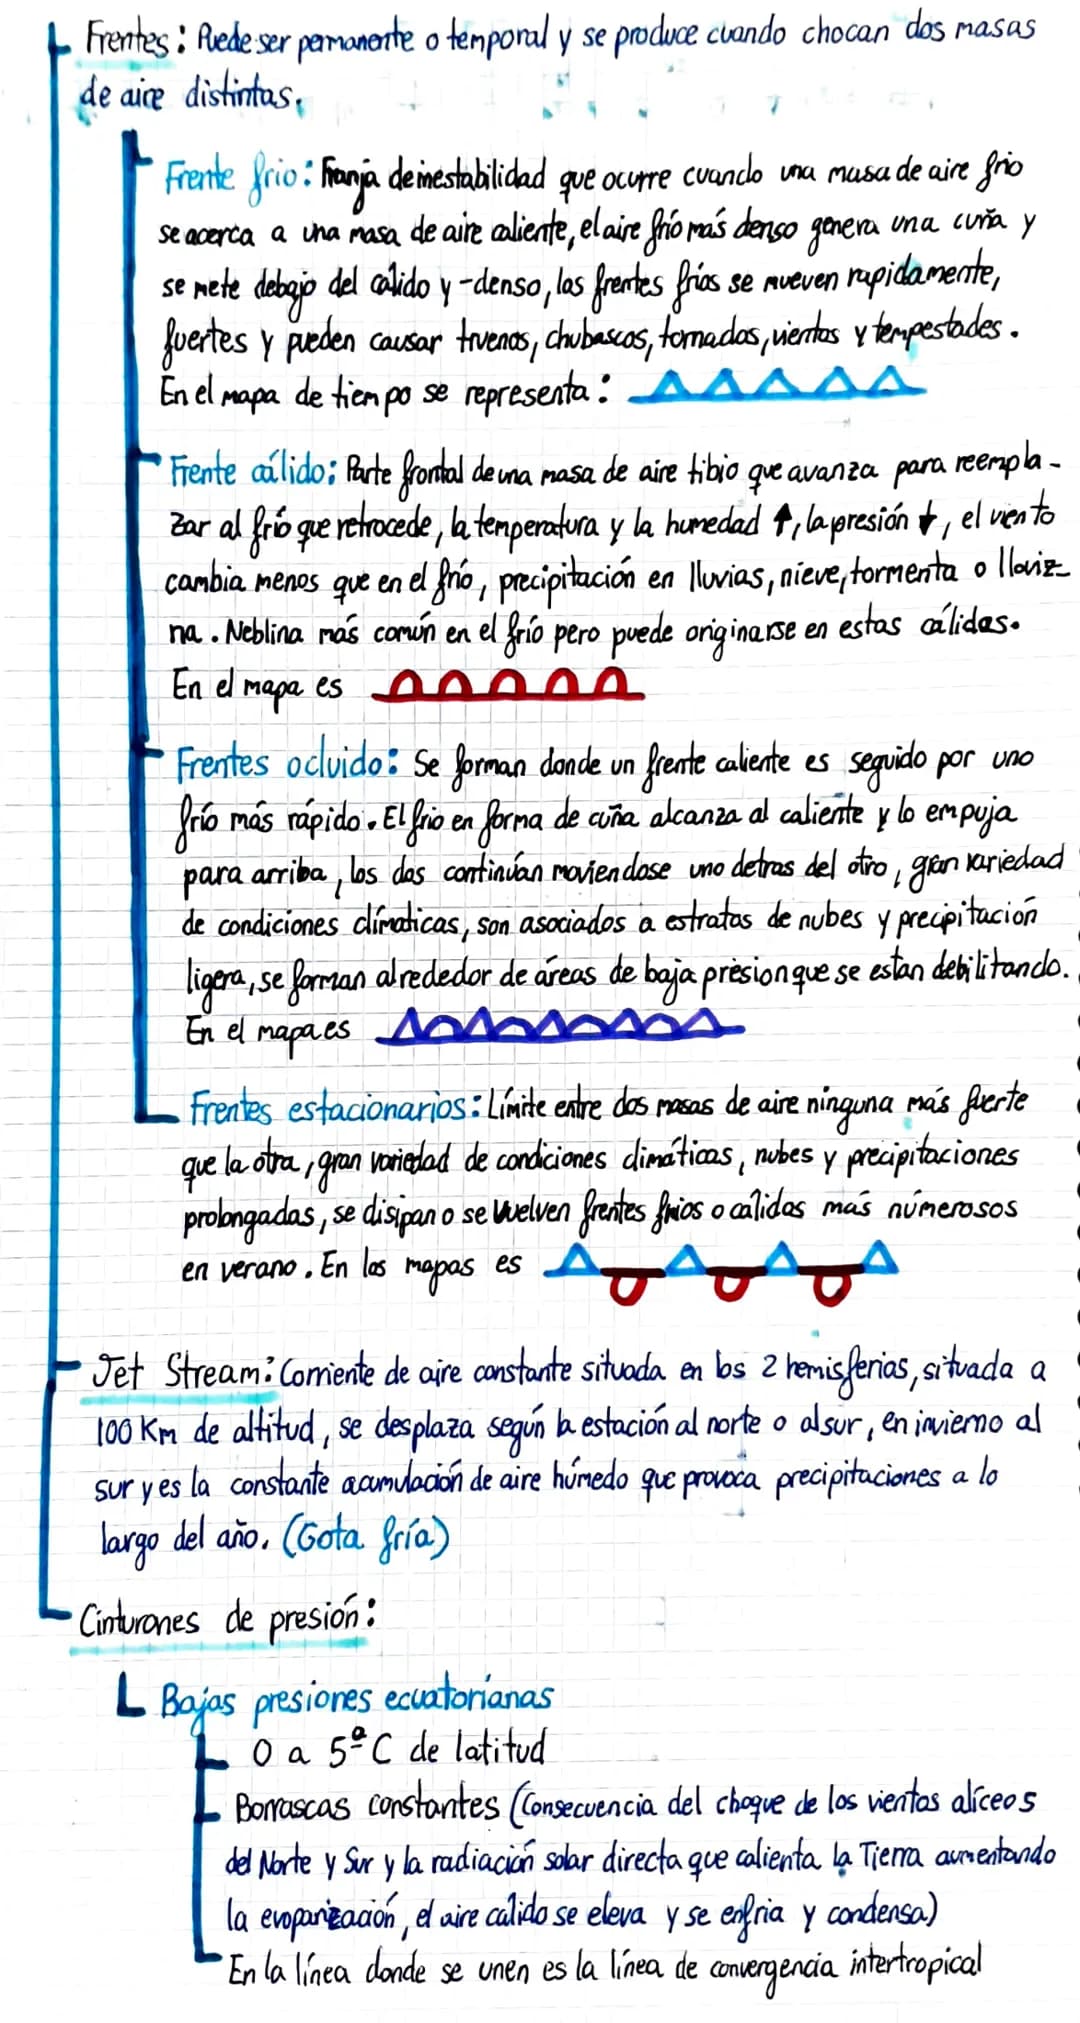 Frentes: Puede ser permanente o temporal y se produce cuando chocan dos masas
de aire distintas.
Frente frio: Franja de inestabilidad que ocurre cuando una masa de aire frio
se acerca a una masa de aire caliente, el aire frío más denso genera una cuña y
se mete debajo del cálido y -denso, las frentes fríos se mueven rapidamente,
fuertes y pueden causar truenos, chubascos, tornados, vientos y tempestades.
En el mapa de tiempo se representa:
Frente cálido: Parte frontal de una masa de aire tibio que avanza para reempla-
zar al frío que retrocede, la temperatura y la humedad ↑, la presión ↓, el viento
cambia menos que en el frío, precipitación en lluvias, nieve, tormenta o lloviz-
na. Neblina más común en el frío pero puede originarse en estas cálidas.
En el mapa es
Frentes ocluido: Se forman donde un frente caliente es seguido por uno
frío más rápido. El frio en forma de cuña alcanza al caliente y lo empuja
para arriba, los dos continúan moviendose uno detras del otro, gran variedad
de condiciones clímaticas, son asociados a estratos de nubes y precipitación
ligera, se forman alrededor de áreas de baja presion que se estan debilitando.
En el mapa es
Frentes estacionarios: Límite entre dos masas de aire ninguna más fuerte
que la otra, gran variedad de condiciones climáticas, nubes y precipitaciones
prolongadas, se disipan o se vuelven frentes frios o cálidos más númerosos
en verano. En los mapas es
Jet Stream: Corriente de aire constante situada en los 2 hemisferios, situada a
100 Km de altitud, se desplaza según la estación al norte o al sur, en invierno al
sur y es la constante acumulación de aire húmedo que provoca precipitaciones a lo
largo del año. (Gota fría)
Cinturones de presión:
Bajas presiones ecuatorianas
0 a 5ºC de latitud
Borrascas constantes (Consecuencia del choque de los vientos alíceos
del Norte y Sur y la radiación solar directa que calienta la Tierra aumentando
la evoparización, el aire cálido se eleva y se enfria y condensa)
En la línea donde se unen es la línea de convergencia intertropical